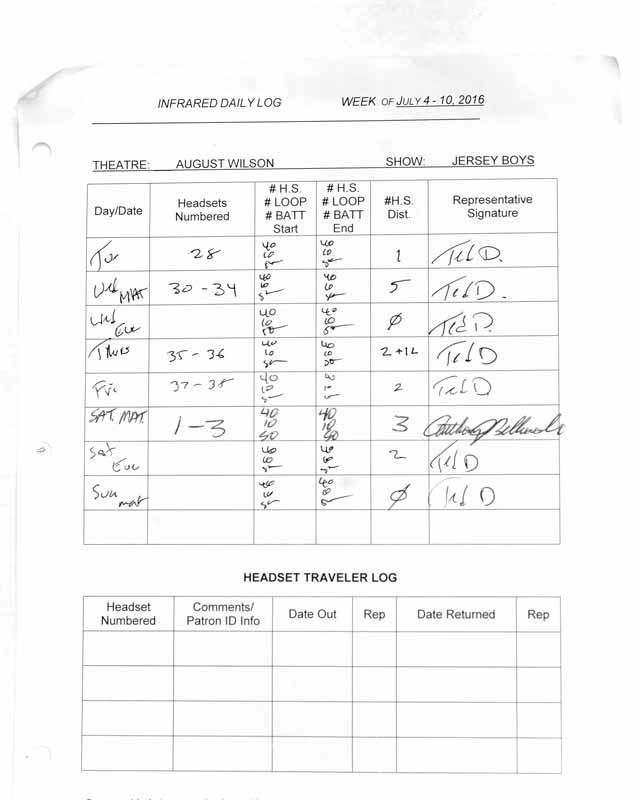 INFRARED DAILY LOG WEEK OF JULY 4 - 10, 2016
THEATRE: AUGUST WILSON SHOW: JERSEY BOYS
Day/Date
Headsets
Numbered
# H.S.
# LOOP
# BATT
Start
# H.S.
# LOOP
# BATT
End
#H.S.
Dist.
Representative
Signature
Tu 28 40 10 50 40 10 50 1 Ted D.
Wed MAT 30 - 34 40 10 50 40 10 5 Ted D.
Wed Eve 40 10 50 40 10 50 Ø Ted D.
Thurs 35 - 36 40 10 50 40 10 50 2 + 1L Ted D
Fri 37 - 38 40 10 2 Ted D
SAT. MAT. 1 - 3 40 10 50 40 10 50 3 Anthony
Sat Eve 40 10 50 40 10 50 2 Ted D
Sun mat 40 10 50 40 10 50 Ø Ted D
HEADSET TRAVELER LOG
Headset
Numbered
Comments/
Patron ID Info
Date Out
Rep
Date Returned
Rep